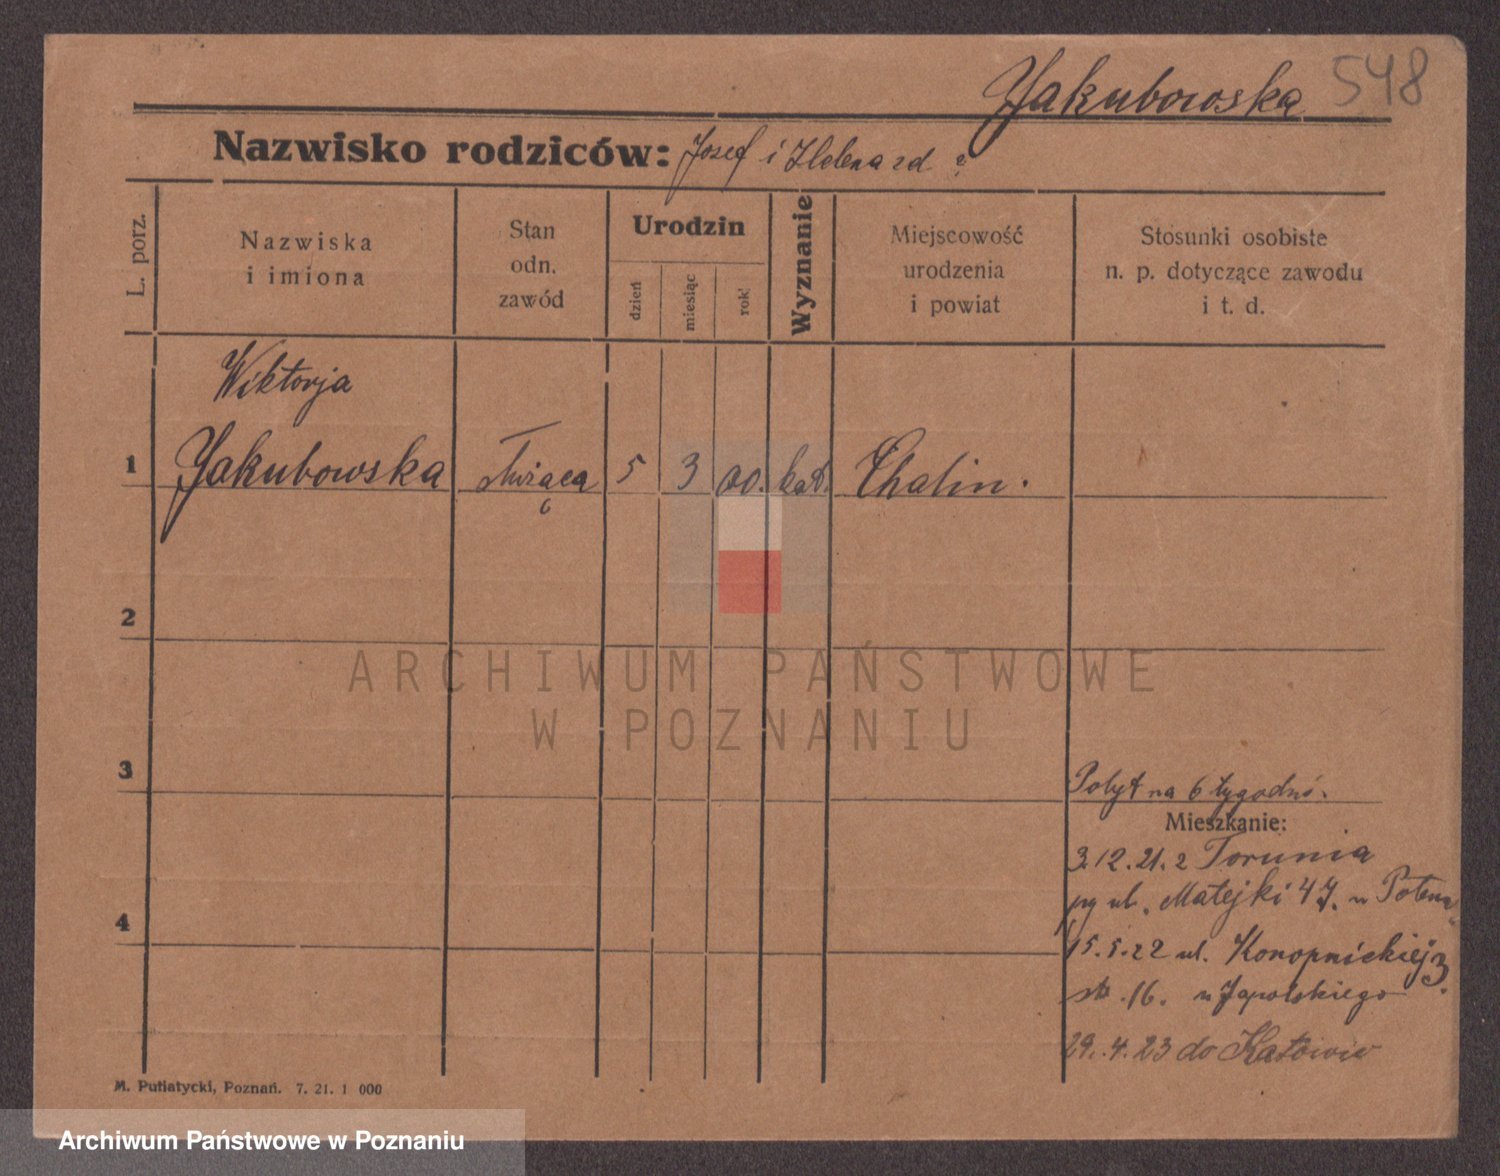 Jakubowska 548
Nazwisko rodziców: Josef i Helena zd ?
L. porz.
Nazwiska
i imiona
Stan
odn.
zawód
Urodzin
dzień
miesiąc
rok
Wyznanie
Miejscowość
urodzenia
i powiat
Stosunki osobiste
n. p. dotyczące zawodu
i t. d.
Wiktorja
1 Jakubowska służąca 5 3 00. kat. Chalin.
2
ARCHIWUM PAŃSTWOWE
W POZNANIU
3
Pobyt na 6 tygodni.
Mieszkanie:
3.12.21. z Torunia
ul. Matejki 47. u
4
15.5.22 ul. Konopnickiej 3.
16. u
29.4.23 do Katowic
M. Putiatycki, Poznań. 7. 21. 1 000
Archiwum Państwowe w Poznaniu